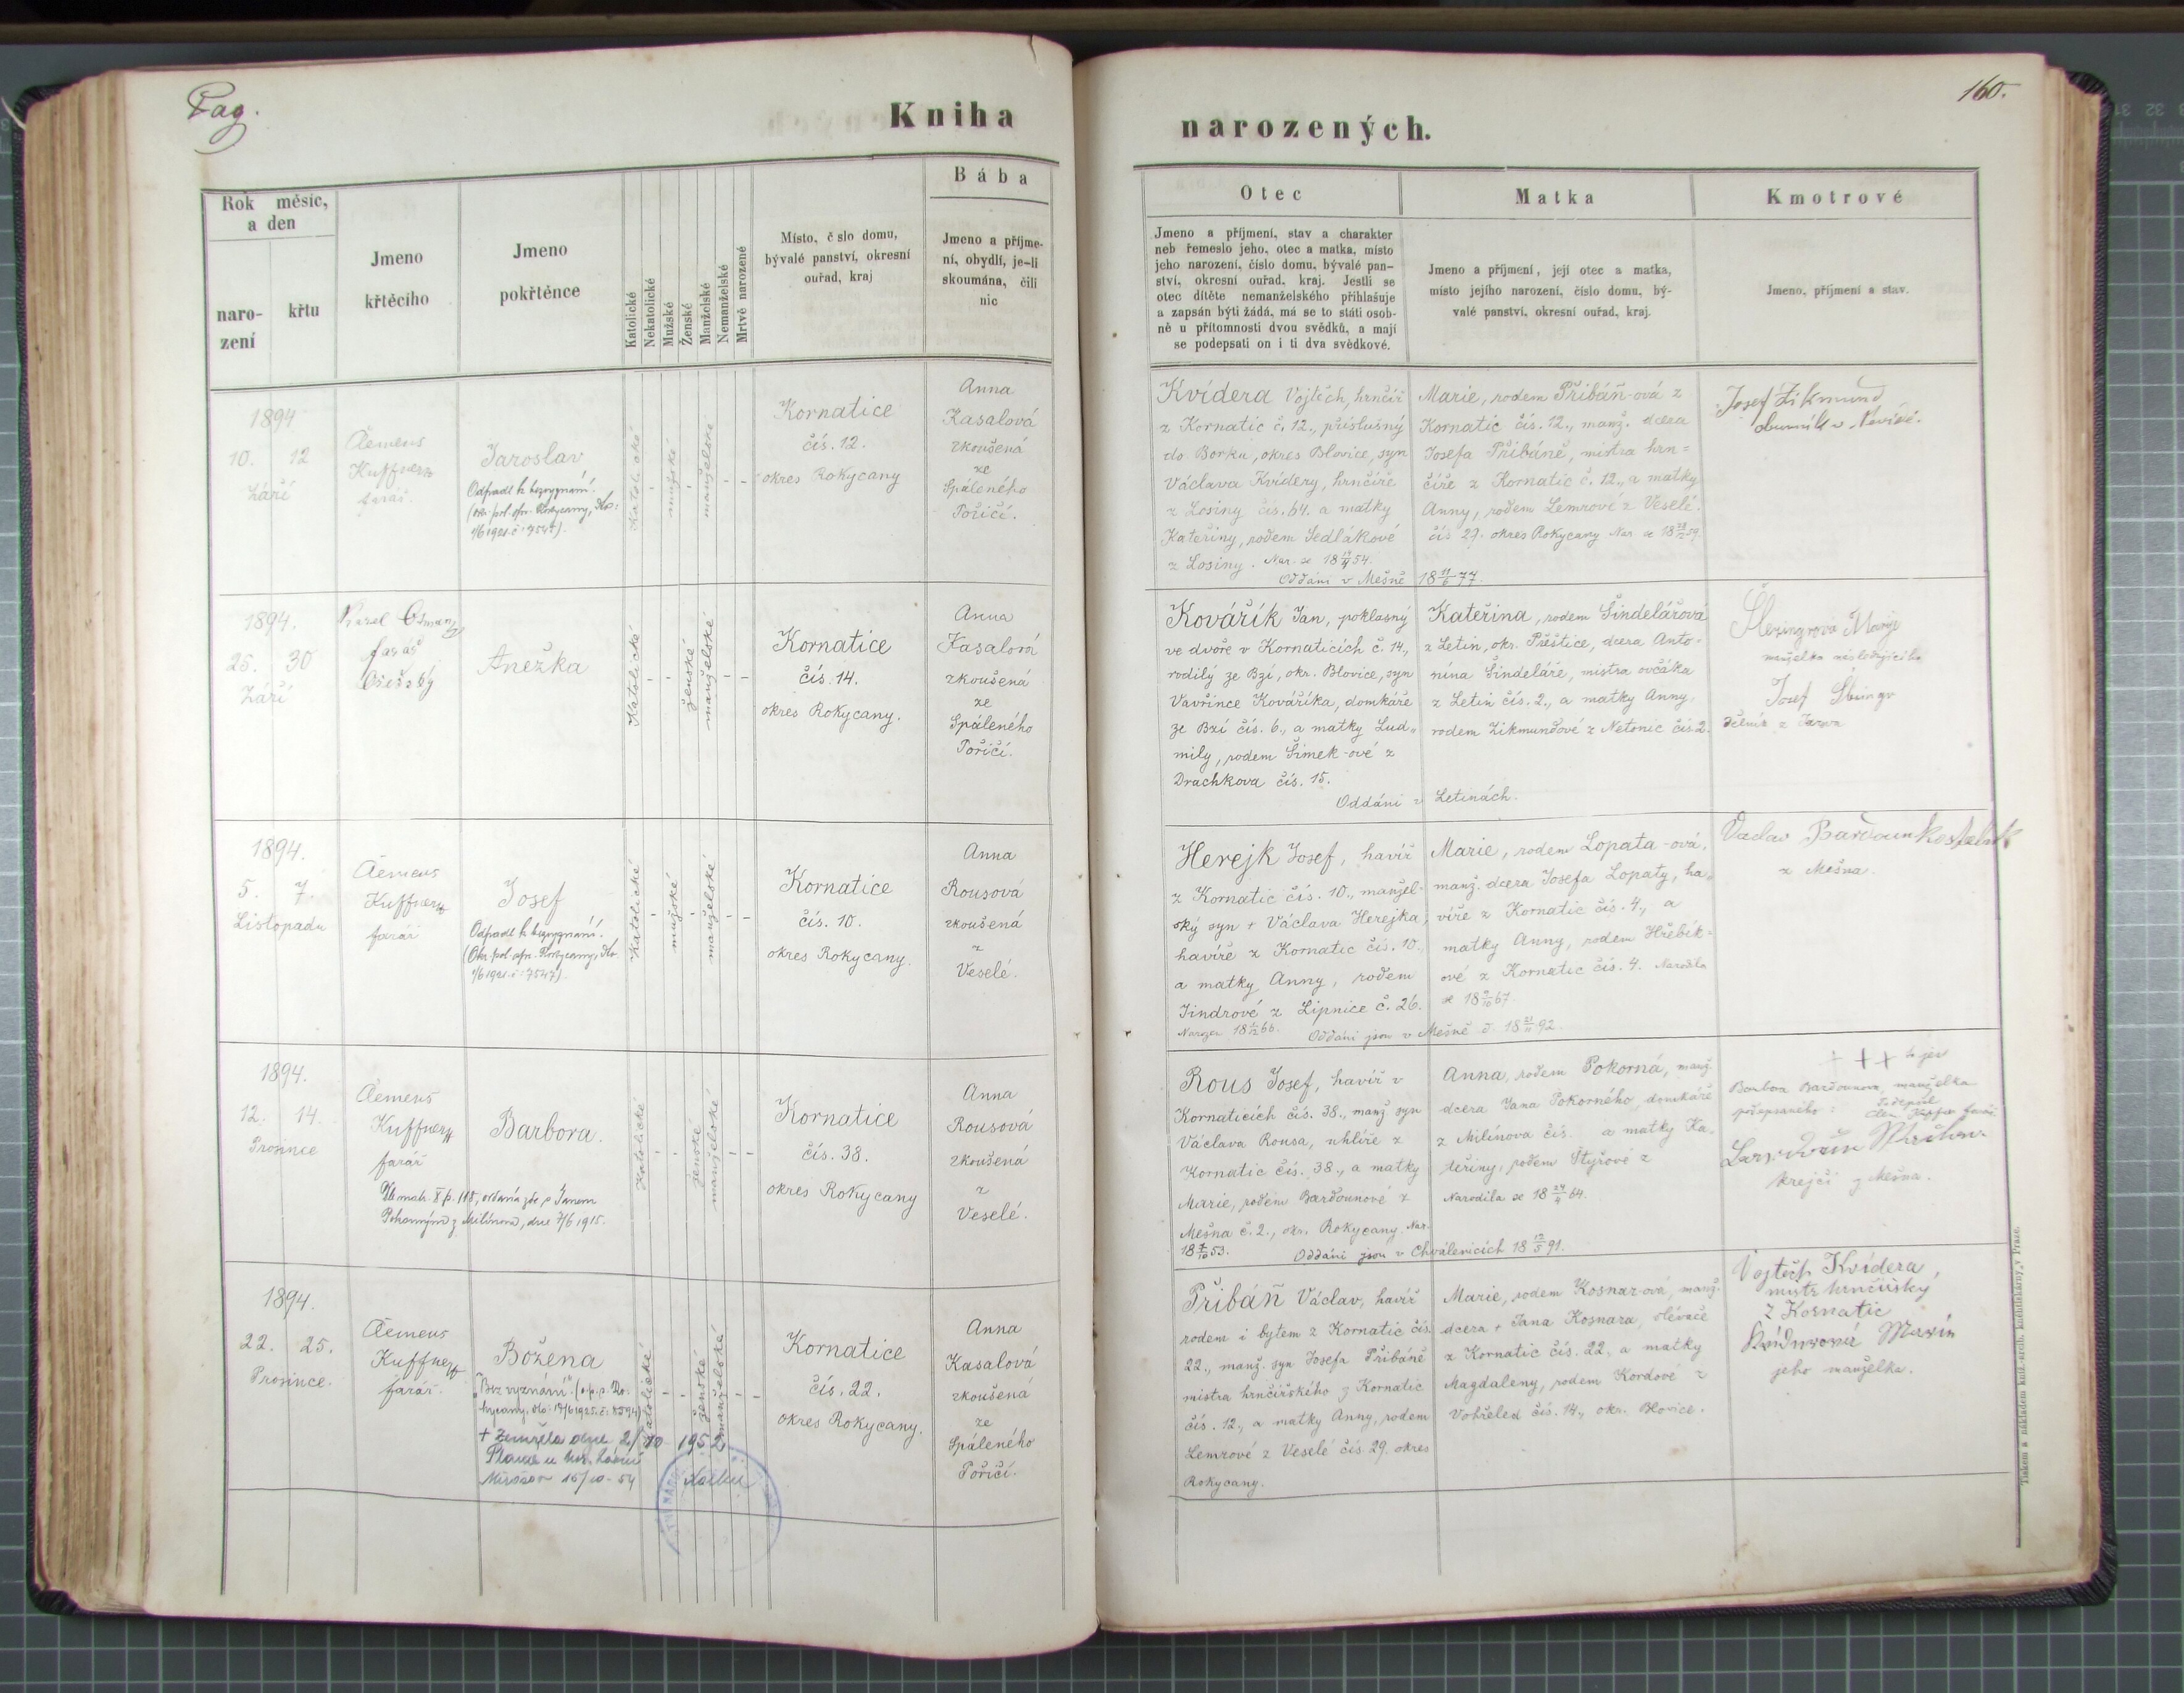 Pag.
Kniha
narozených.
160.
Rok měsíc,
a den
naro-
zení
křtu
Jmeno
křtěcího
Jmeno
pokřtěnce
Katolické
Nekatolické
Mužské
Ženské
Manželské
Nemanželské
Mrtvě narozené
Místo, č slo domu,
bývalé panství, okresní
ouřad, kraj
Bába
Jmeno a příjme-
ní, obydlí, je-li
skoumána, čili
nic
Otec
Jmeno a příjmení, stav a charakter
neb řemeslo jeho, otec a matka, místo
jeho narození, číslo domu, bývalé pan-
ství, okresní ouřad, kraj. Jestli se
otec dítěte nemanželského přihlašuje
a zapsán býti žádá, má se to státi osob-
ně u přítomnosti dvou svědků, a mají
se podepsati on i ti dva svědkové.
Matka
Jmeno a příjmení, její otec a matka,
místo jejího narození, číslo domu, bý-
valé panství, okresní ouřad, kraj.
Kmotrové
Jmeno, příjmení a stav.
1894
10. 12
Září
Clemens
Kuffner
farář.
Jaroslav
Odpadl k bezvyznání.
(okr. pol. spr. Rokycany, do:
1/6 1921. č: 7547).
Katolické
mužské
manželské
Kornatice
čís. 12.
okres Rokycany
Anna
Kasalová
zkoušená
ze
Spáleného
Poříčí.
Kvídera Vojtěch, hrnčíř
z Kornatic č. 12., příslušný
do Borku, okres Blovice, syn
Václava Kvídery, hrnčíře
z Losiny čís. 64. a matky
Kateřiny, rodem Sedlákové
z Losiny. Nar. se 18 54.
Oddáni v Mešně 18 11/6 77.
Marie, rodem Přibáň-ová z
Kornatic čís. 12., manž. dcera
Josefa Přibáně, mistra hrn=
číře z Kornatic č. 12., a matky
Anny, rodem Lemrové z Veselé.
čís 29. okres Rokycany Nar. se 18 59.
Josef Zikmund
1894.
25. 30
Září
Karel
farář
Anežka
Katolické
ženské
manželské
Kornatice
čís. 14.
okres Rokycany.
Anna
Kasalová
zkoušená
ze
Spáleného
Poříčí.
Kovářík Jan, poklasný
ve dvoře v Kornaticích č. 14.,
rodilý ze Bzí, okr. Blovice, syn
Vavřince Kováříka, domkáře
ze Bzí čís. 6., a matky Lud„
mily, rodem Šimek-ové z
Drachkova čís. 15.
Oddáni v Letinách.
Kateřina, rodem Šindelářová
z Letin, okr. Přeštice, dcera Anto-
nína Šindeláře, mistra ovčáka
z Letin čís. 2., a matky Anny,
rodem Zikmundové z Netonic čís. 2.
manželka
Josef
dělník z
1894.
5. 7.
Listopadu
Clemens
Kuffner
farář
Josef
Odpadl k bezvyznání.
(Okr. pol. spr. Rokycany, do.
1/6 1921. č: 7547).
Katolické
mužské
manželské
Kornatice
čís. 10.
okres Rokycany.
Anna
Rousová
zkoušená
z
Veselé.
Herejk Josef, havíř
z Kornatic čís. 10., manžel-
ský syn + Václava Herejka,
havíře z Kornatic čís. 10.,
a matky Anny, rodem
Jindrové z Lipnice č. 26.
Narozen 18 66. Oddáni jsou v Mešně d. 18 92.
Marie, rodem Lopata-ová,
manž. dcera Josefa Lopaty, ha„
víře z Kornatic čís. 4., a
matky Anny, rodem Hřebík-
ové z Kornatic čís. 4. Narodila
se 18 9/10 67.
Václav Bardoun kostelník
z Mešna.
1894.
12. 14.
Prosince
Clemens
Kuffner
farář
Barbora.
Dle matr. X p. 118, oddaná zde s Janem
Pokorným z Milínova, dne 7/6 1915.
Katolické
ženské
manželské
Kornatice
čís. 38.
okres Rokycany
Anna
Rousová
zkoušená
z
Veselé.
Rous Josef, havíř v
Kornaticích čís. 38., manž. syn
Václava Rousa, uhlíře z
Kornatic čís. 38., a matky
Marie, rodem Bardounové z
Mešna č. 2., okr. Rokycany. Nar.
18 53. Oddáni jsou v Chválenicích 18 12/5 91.
Anna, rodem Pokorná, manž.
dcera Jana Pokorného, domkáře
z Milínova čís. a matky Ka„
teřiny, rodem Štyřové z
Narodila se 18 24/4 64.
+ + + to jest
Barbora Bardounova, manželka
podepsaného:
krejčí z Mešna.
1894.
22. 25.
Prosince.
Clemens
Kuffner
farář.
Božena
"Bez vyznání" (o. p. s. Ro-
kycany, do: 17/6 1925. č: 8594)
+ Zemřela dne 2/10 1952
Mirošov 15/10-54
Katolické
ženské
manželské
Kornatice
čís. 22.
okres Rokycany.
Anna
Kasalová
zkoušená
ze
Spáleného
Poříčí.
Přibáň Václav, havíř
rodem i bytem z Kornatic čís.
22., manž. syn Josefa Přibáně
mistra hrnčířského z Kornatic
čís. 12., a matky Anny, rodem
Lemrové z Veselé čís. 29. okres
Rokycany.
Marie, rodem Kosnar-ová, manž.
dcera + Jana Kosnara, slévače
z Kornatic čís. 22., a matky
Magdaleny, rodem Kordové z
Vohřeled čís. 14., okr. Blovice.
Vojtěch Kvídera,
mistr hrnčířský
z Kornatic
Kvíderová Marie
jeho manželka.
Tiskem a nákladem knih. arcib. knihtiskárny v Praze.